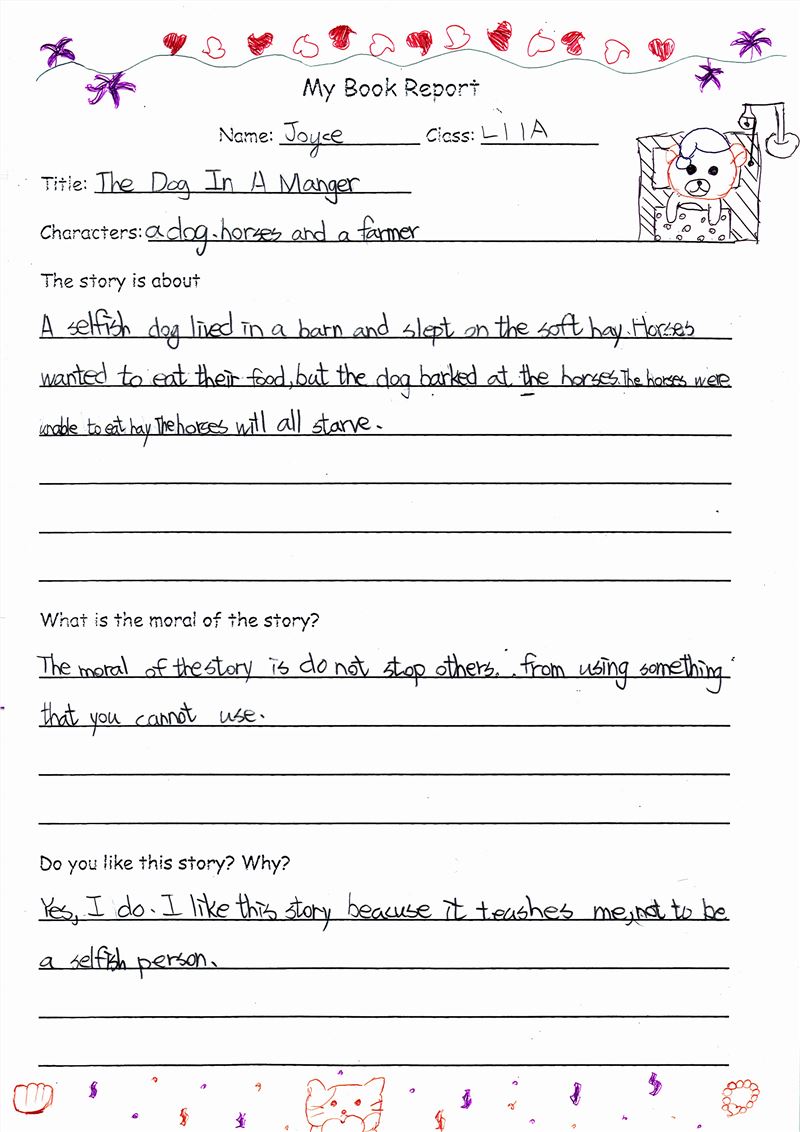 My Book Report
Name: Joyce Class: L11A
Title: The Dog In A Manger
Characters: a dog. horses and a farmer
The story is about
A selfish dog lived in a barn and slept on the soft hay. Horses
wanted to eat their food, but the dog barked at the horses. The horses were
unable to eat hay The horses will all starve.
What is the moral of the story?
The moral of the story is do not stop others. from using something
that you cannot use.
Do you like this story? Why?
Yes, I do. I like this story beacuse it teashes me, not to be
a selfish person.